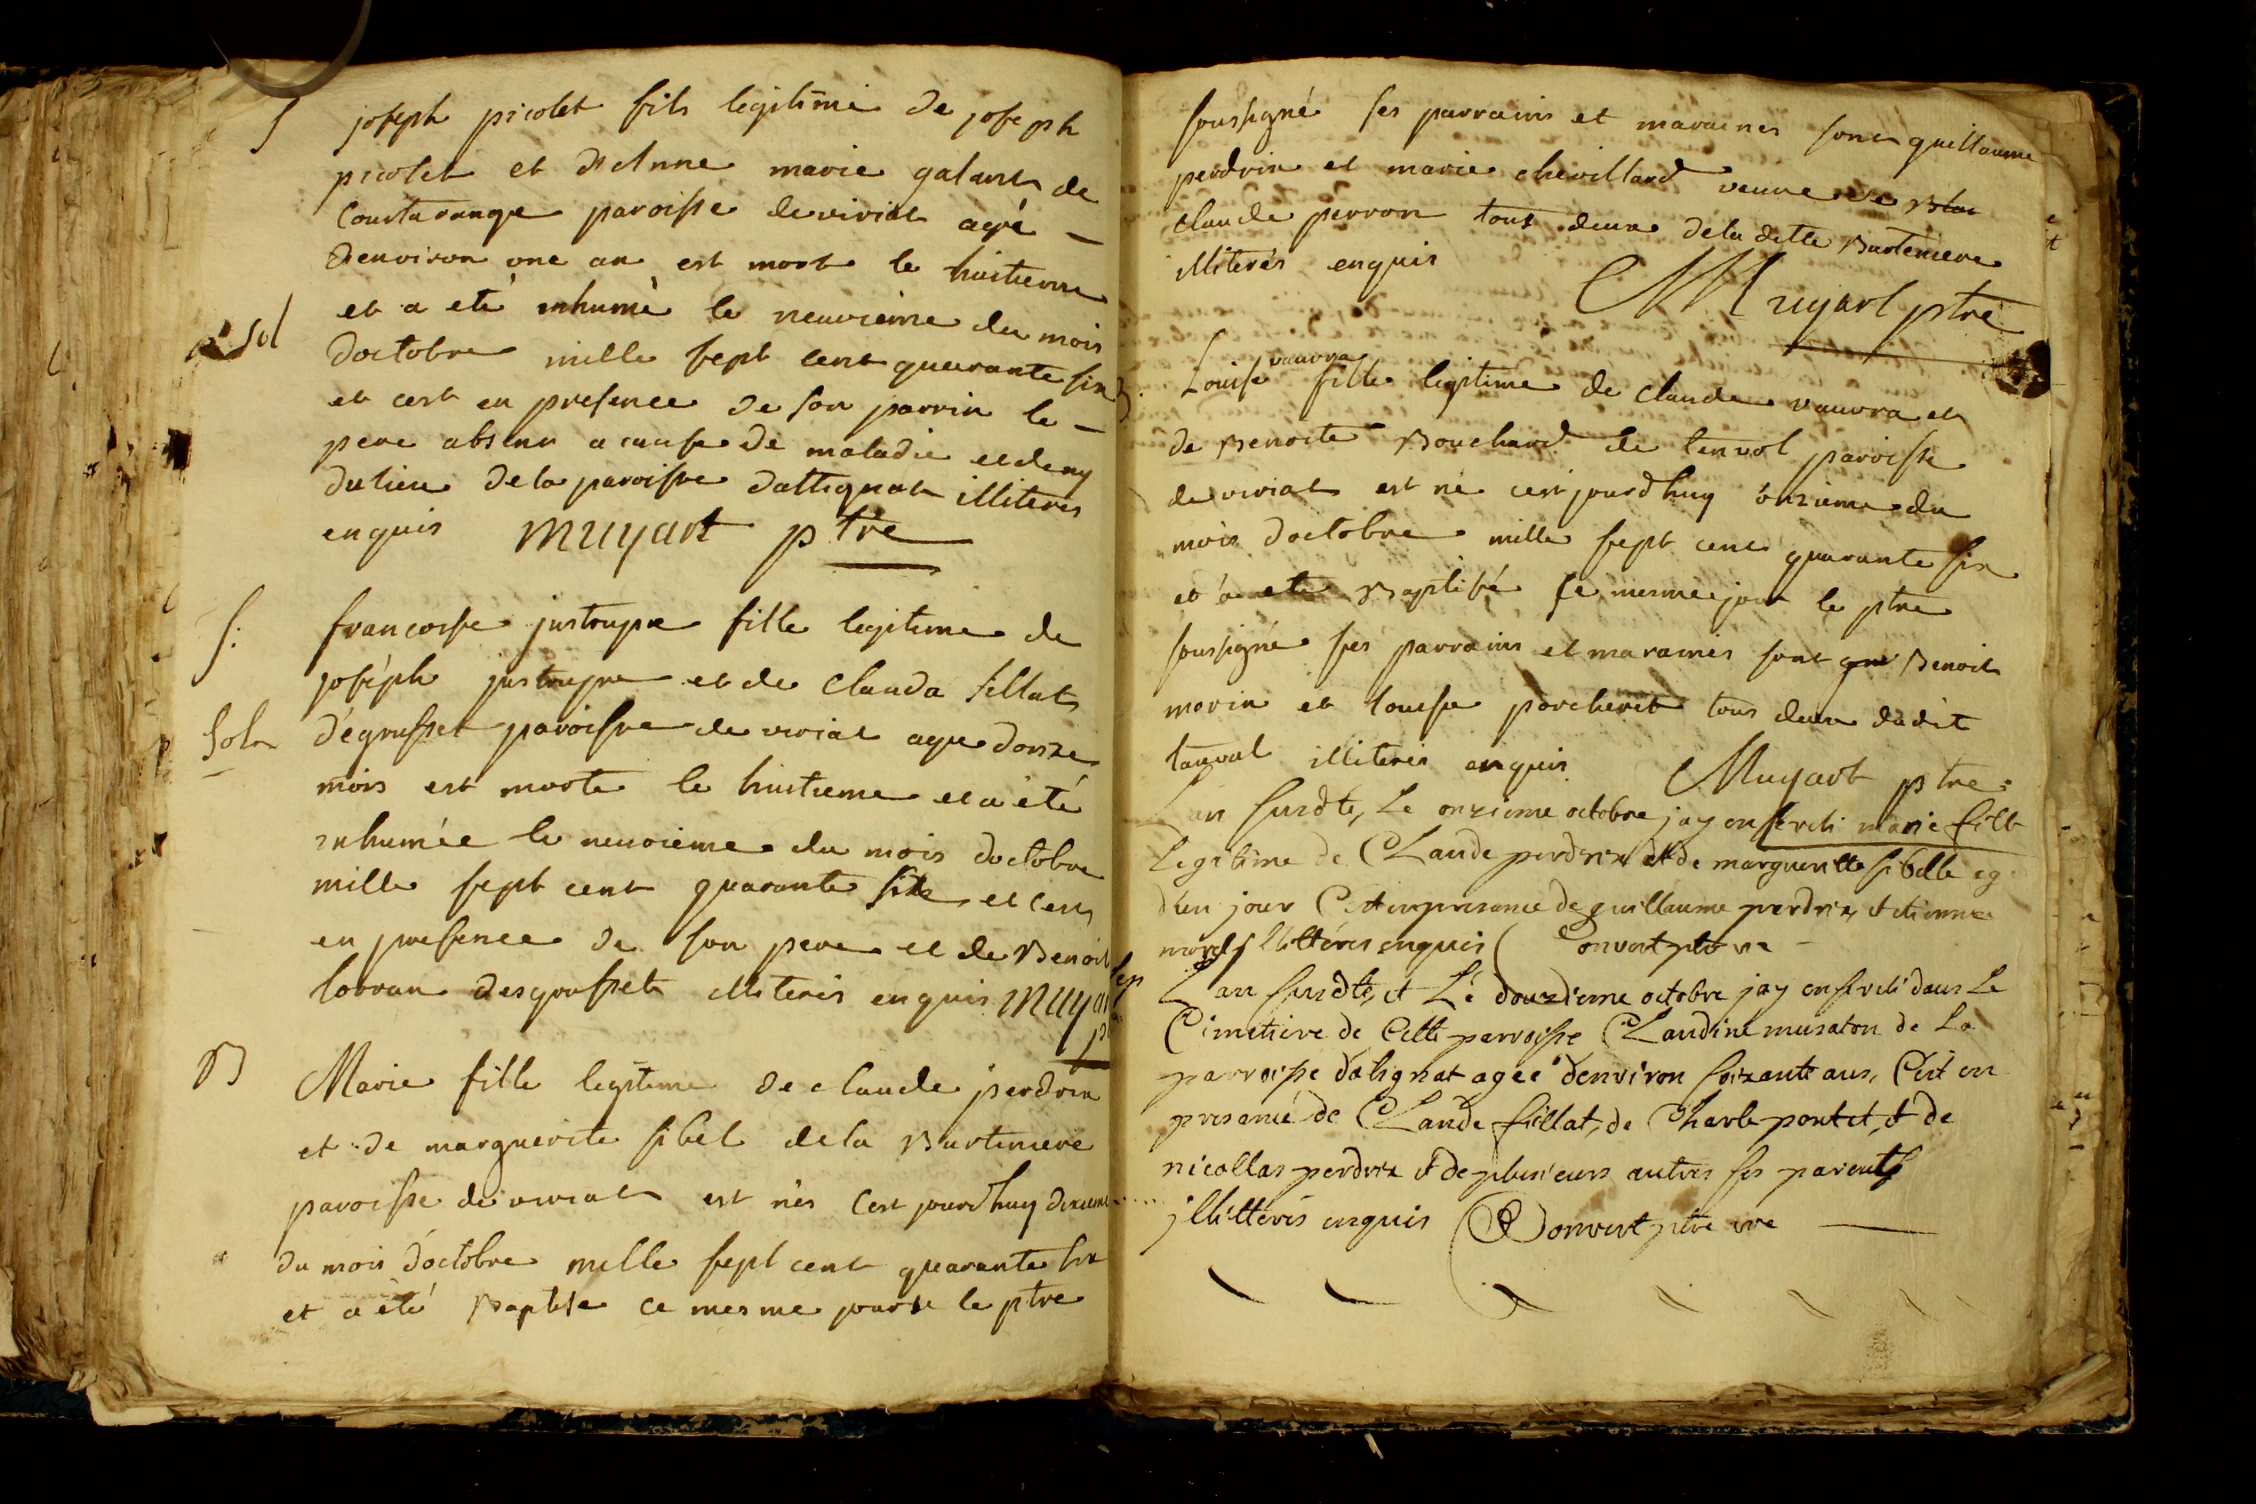 S joseph picolet fils legitime de joseph
picolet et d'Anne marie galant de
Coustarange paroisse de viriat agé
denviron une an est mort le huitieme
et a eté inhumé le neuvieme du mois
sol
doctobre mille sept cent quarante six
et cest en presence de son parrin le
pere absent a cause de maladie et de
du lieu de la paroisse dattignat illiteres
enquis Muyart ptre
S. francoise fille legitime de
joseph et de Clauda fillat
Soln
degrusset paroisse de viriat agee donze
mois est morte le huitieme et a été
inhumée le neuvieme du mois doctobre
mille sept cent quarante six et cest
en presence de son pere et de Benoit
lorran desgrusset illiteres enquis Muyart
B Marie fille legitime de claude perdrix
et de marguerite sibel de la Bartiniere
paroisse de viriat est nes Cest jourd'huy dixieme
du mois d'octobre mille sept cent quarante six
et a été Baptise ce mesme jour le ptre
soussigné ses parrains et maraines sont guillaume
perdrix et marie chevillard veuve de
claude perron tous deux de la ditte Bartiniere
illiterés enquis
Muyart ptre
vauvra
Louise fille legitime de claude vauvra et
de Benoite Bouchard de tanvol paroisse
de viriat est né cest jourd'huy onzieme du
mois doctobre mille sept cent quarante six
et a eté Baptisé ce mesme jour le ptre
soussigné ses parrains et maraines sont Benoit
morin et louise porcheret tous deux dudit
tanvol illiteres enquis Muyart ptre
L'an susdte, Le onzieme octobre jay enseveli marie fille
Legitime de Claude perdrix et de margueritte sibelle
d'un jour C'est en presence de guillaume perdrix, et etienne
morel illittéres enquis Convert ptre vre
L'an susdte, et Le douzieme octobre jay enseveli dans Le
Cimetiere de Cette parroisse Claudine musaton de La
parroisse datignat agée denviron soizante ans, C'est en
presence de Claude fillat, de Charle pontet, et de
nicollas perdrix et de plusieurs autres ses parents
jllittéres enquis Convert ptre vre